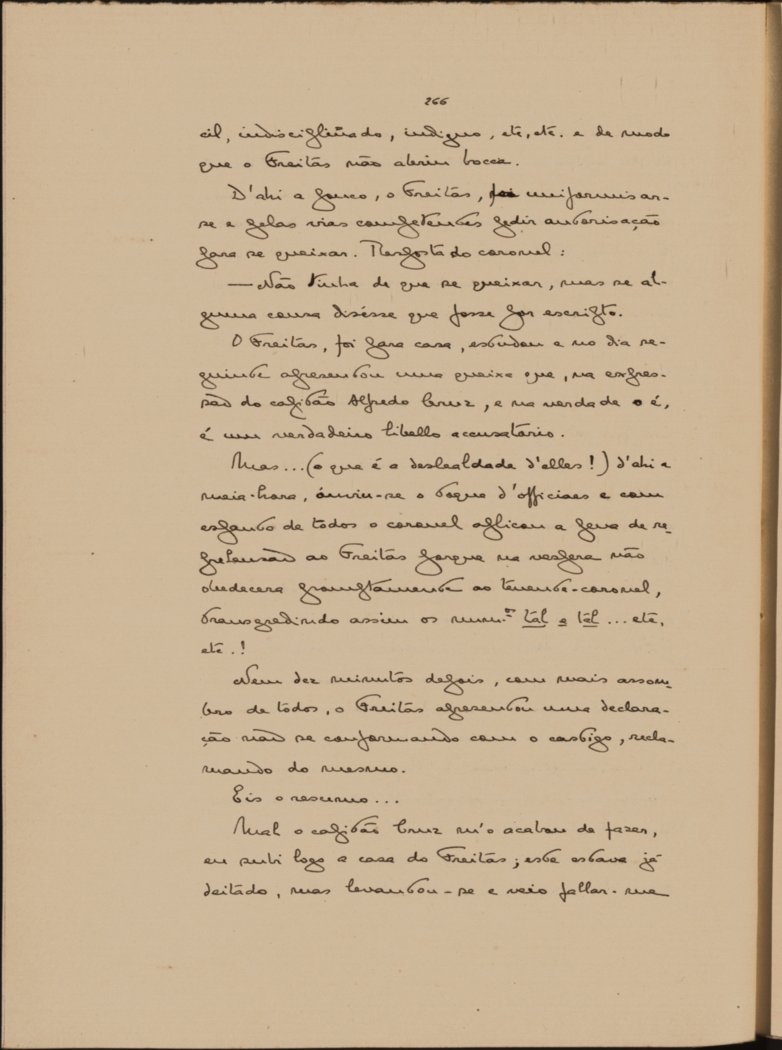 266
cil, indisciplinado, indigno, etc, etc. e de modo
que o Freitas não abriu bocca.
D'ahi a pouco, o Freitas, foi uniformisar-
se e pelas vias competentes pedir autorisação
para se queixar. Resposta do coronel:
— Não tinha de que se queixar, mas se al-
guma cousa disésse que fosse por escripto.
O Freitas, foi para casa, estudou e no dia se-
guinte apresentou uma queixa que, na expres-
são do capitão Alfredo Cruz, e na verdade o é,
é um verdadeiro libello accusatorio.
Mas... (o que é a deslealdade d'elles!) d'ahi a
meia-hora, ouviu-se o toque d'officiaes e com
espanto de todos o coronel applicou a pena de re-
prehensão ao Freitas porque na vespera não
obedecera promptamente ao tenente-coronel,
transgredindo assim os num.os tal e tal... etc,
etc.!
Nem dez minutos depois, com mais assom-
bro de todos, o Freitas apresentou uma declara-
ção não se conformando com o castigo, recla-
mando do mesmo.
Eis o resumo...
Mal o capitão Cruz m'o acabou de fazer,
eu subi logo a casa do Freitas; este estava já
deitado, mas levantou-se e veio fallar-me